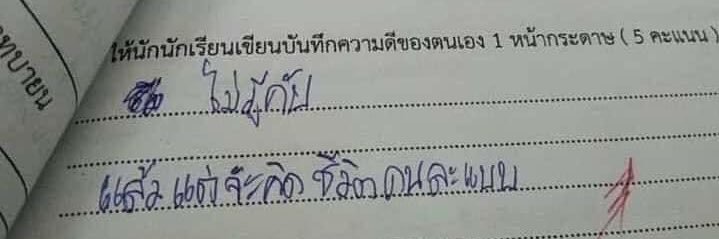 ทบายน
ให้นักนักเรียนเขียนบันทึกความดีของตนเอง 1 หน้ากระดาษ ( 5 คะแนน )
ไม่มีครับ
แล้วแต่จะคิด ชีวิตคนละแบบ